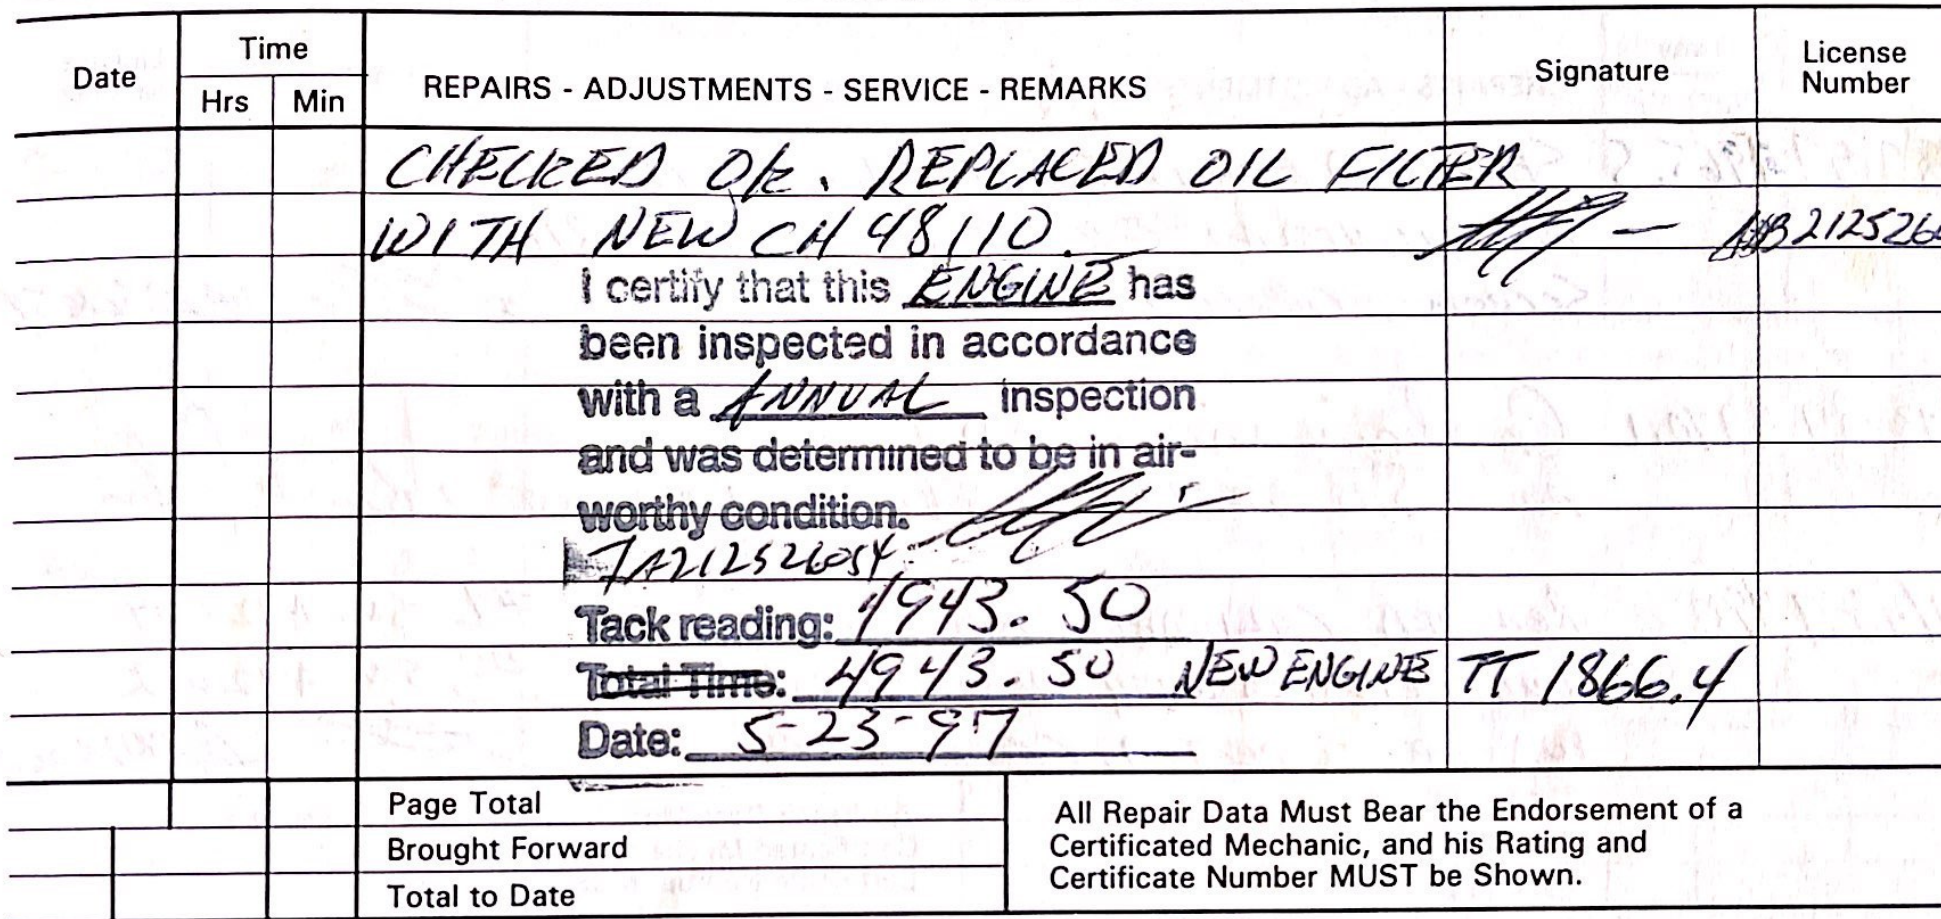 Date Time Hrs Min REPAIRS - ADJUSTMENTS - SERVICE - REMARKS Signature License Number
CHECKED OK. REPLACED OIL FILTER
WITH NEW CH 48110.
I certify that this ENGINE has
been inspected in accordance
with a ANNUAL inspection
and was determined to be in air-
worthy condition.
Tack reading: 4943.50
Total Time: 4943.50 NEW ENGINE TT 1866.4
Date: 5-23-97
Page Total
Brought Forward
Total to Date
All Repair Data Must Bear the Endorsement of a
Certificated Mechanic, and his Rating and
Certificate Number MUST be Shown.